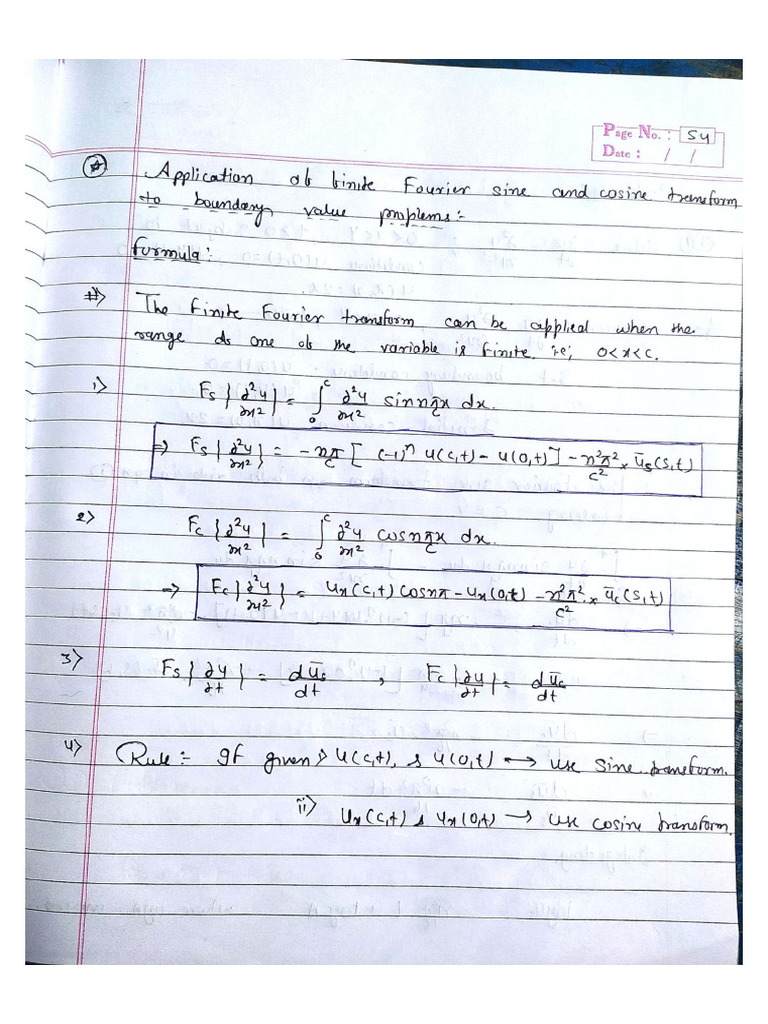 Page No. : 54
Date : / /
Application of finite Fourier sine and cosine transform
to boundary value proplems:-
formula:
#> The Finite Fourier transform can be applied when the
range is one of the variable is finite. ie; 0<x<c.
1> Fs{∂²u/∂x²} = ∫₀ᶜ ∂²u/∂x² sin nπx/c dx.
⇒ Fs{∂²u/∂x²} = -nπ/c [ (-1)ⁿ u(c,t) - u(0,t) ] - n²π²/c² × ūs(s,t)
2> Fc{∂²u/∂x²} = ∫₀ᶜ ∂²u/∂x² cos nπx/c dx.
⇒ Fc{∂²u/∂x²} = ux(c,t) cos nπ - ux(0,t) - n²π²/c² × ūc(s,t)
3> Fs{∂u/∂t} = dūs/dt , Fc{∂u/∂t} = dūc/dt
4> Rule:- If given i> u(c,t), & u(0,t) → use sine transform.
ii> ux(c,t) & ux(0,t) → use cosine transform.